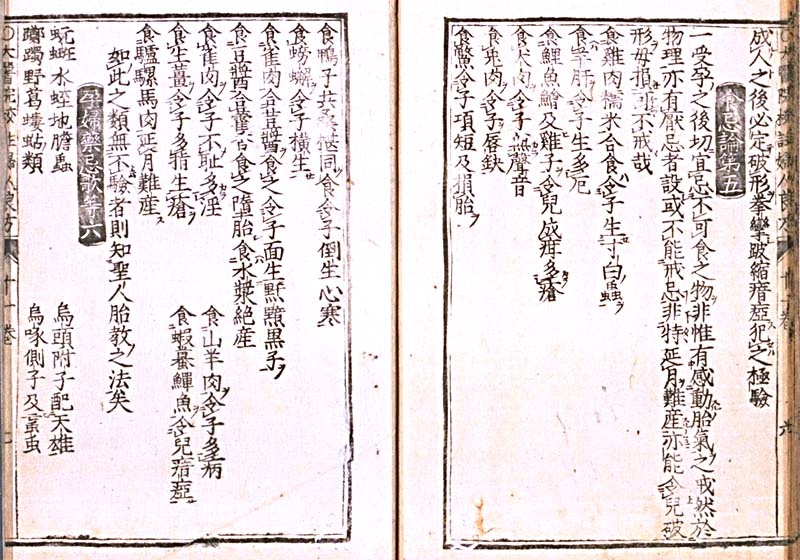 成人之後必定破形拳攣跛縮瘖瘂犯之極驗
食忌論第五
一受孕之後切宜忌不可食之物非惟有感動胎氣之戒然於
物理亦有厭忌者設或不能戒忌非特延月難産亦能令兒破
形母損可不戒哉
食雞肉糯米合食令子生寸白蟲
食羊肝令子生多厄
食鯉魚鱠及雞子令兒成疳多瘡
食犬肉令子無聲音
食兎肉令子唇缺
食鱉令子項短及損胎
食鴨子共桑椹同食令子倒生心寒
食螃蠏令子横生
食雀肉合豆醬食之令子面生䵟黑子
食豆醬合藿香食之墮胎 食水漿絶産
食雀肉令子不耻多淫 食山羊肉令子多病
食生薑令子多指生瘡 食蝦蟇鱓魚令兒瘖瘂
食驢騾馬肉延月難産
如此之類無不驗者則知聖人胎教之法矣
孕婦藥忌歌第六
蚖斑水蛭地膽蟲 烏頭附子配天雄
躑躅野葛螻蛄類 烏喙側子及䖟虫